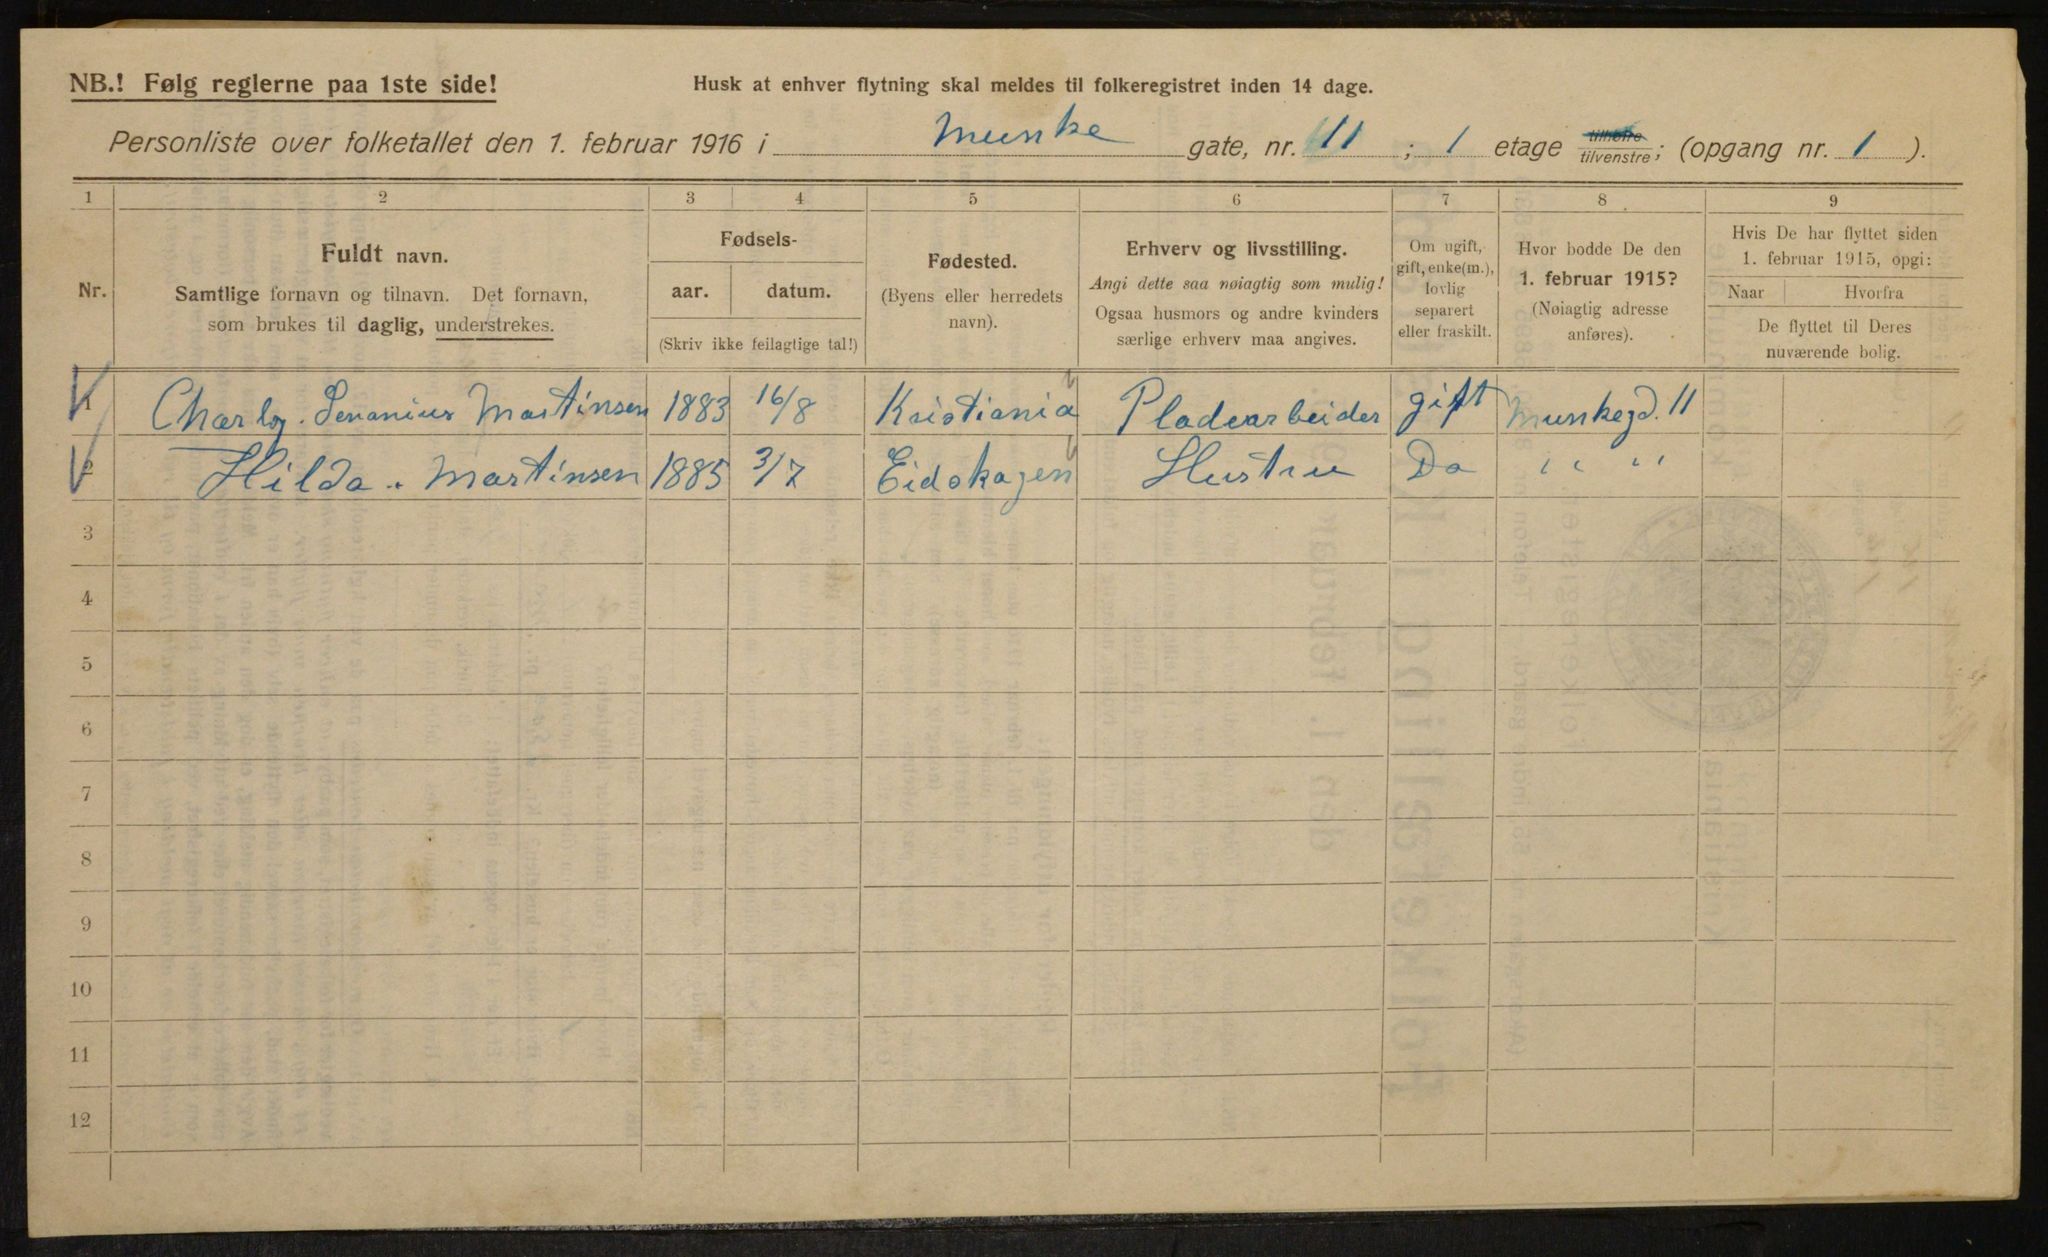 NB.! Følg reglerne paa 1ste side!
Husk at enhver flytning skal meldes til folkeregistret inden 14 dage.
Personliste over folketallet den 1. februar 1916 i Munke gate, nr. 11 ; 1 etage tilhøire tilvenstre; (opgang nr. 1 ).
1 2 3 4 5 6 7 8 9
Nr.
Fuldt navn.
Samtlige fornavn og tilnavn. Det fornavn,
som brukes til daglig, understrekes.
Fødsels-
aar. datum.
(Skriv ikke feilagtige tal!)
Fødested.
(Byens eller herredets
navn).
Erhverv og livsstilling.
Angi dette saa nøiagtig som mulig!
Ogsaa husmors og andre kvinders
særlige erhverv maa angives.
Om ugift,
gift, enke(m.),
lovlig
separert
eller fraskilt.
Hvor bodde De den
1. februar 1915?
(Nøiagtig adresse
anføres).
Hvis De har flyttet siden
1. februar 1915, opgi:
Naar Hvorfra
De flyttet til Deres
nuværende bolig.
1 Martinsen 1883 16/8 Kristiania Pladearbeider gift Munkegd. 11
2 Hilda. Martinsen 1885 3/7 Eidskogen Hustru Do " "
3
4
5
6
7
8
9
10
11
12